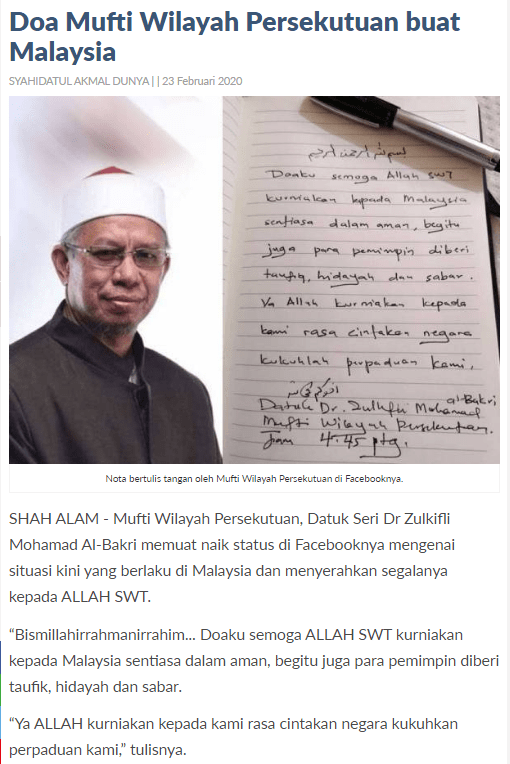 Doa Mufti Wilayah Persekutuan buat
Malaysia
SYAHIDATUL AKMAL DUNYA | | 23 Februari 2020
بسم الله الرحمن الرحيم
Doaku semoga Allah SWT
kurniakan kepada Malaysia
sentiasa dalam aman, begitu
juga para pemimpin diberi
taufiq, hidayah dan sabar.
Ya Allah kurniakan kepada
kami rasa cintakan negara
kukuhlah perpaduan kami.
Datuk Dr. Zulkifli Mohamad al-Bakri
Mufti Wilayah Persekutuan.
Jam 4.45 ptg.
Nota bertulis tangan oleh Mufti Wilayah Persekutuan di Facebooknya.
SHAH ALAM - Mufti Wilayah Persekutuan, Datuk Seri Dr Zulkifli
Mohamad Al-Bakri memuat naik status di Facebooknya mengenai
situasi kini yang berlaku di Malaysia dan menyerahkan segalanya
kepada ALLAH SWT.
“Bismillahirrahmanirrahim... Doaku semoga ALLAH SWT kurniakan
kepada Malaysia sentiasa dalam aman, begitu juga para pemimpin diberi
taufik, hidayah dan sabar.
“Ya ALLAH kurniakan kepada kami rasa cintakan negara kukuhkan
perpaduan kami,” tulisnya.